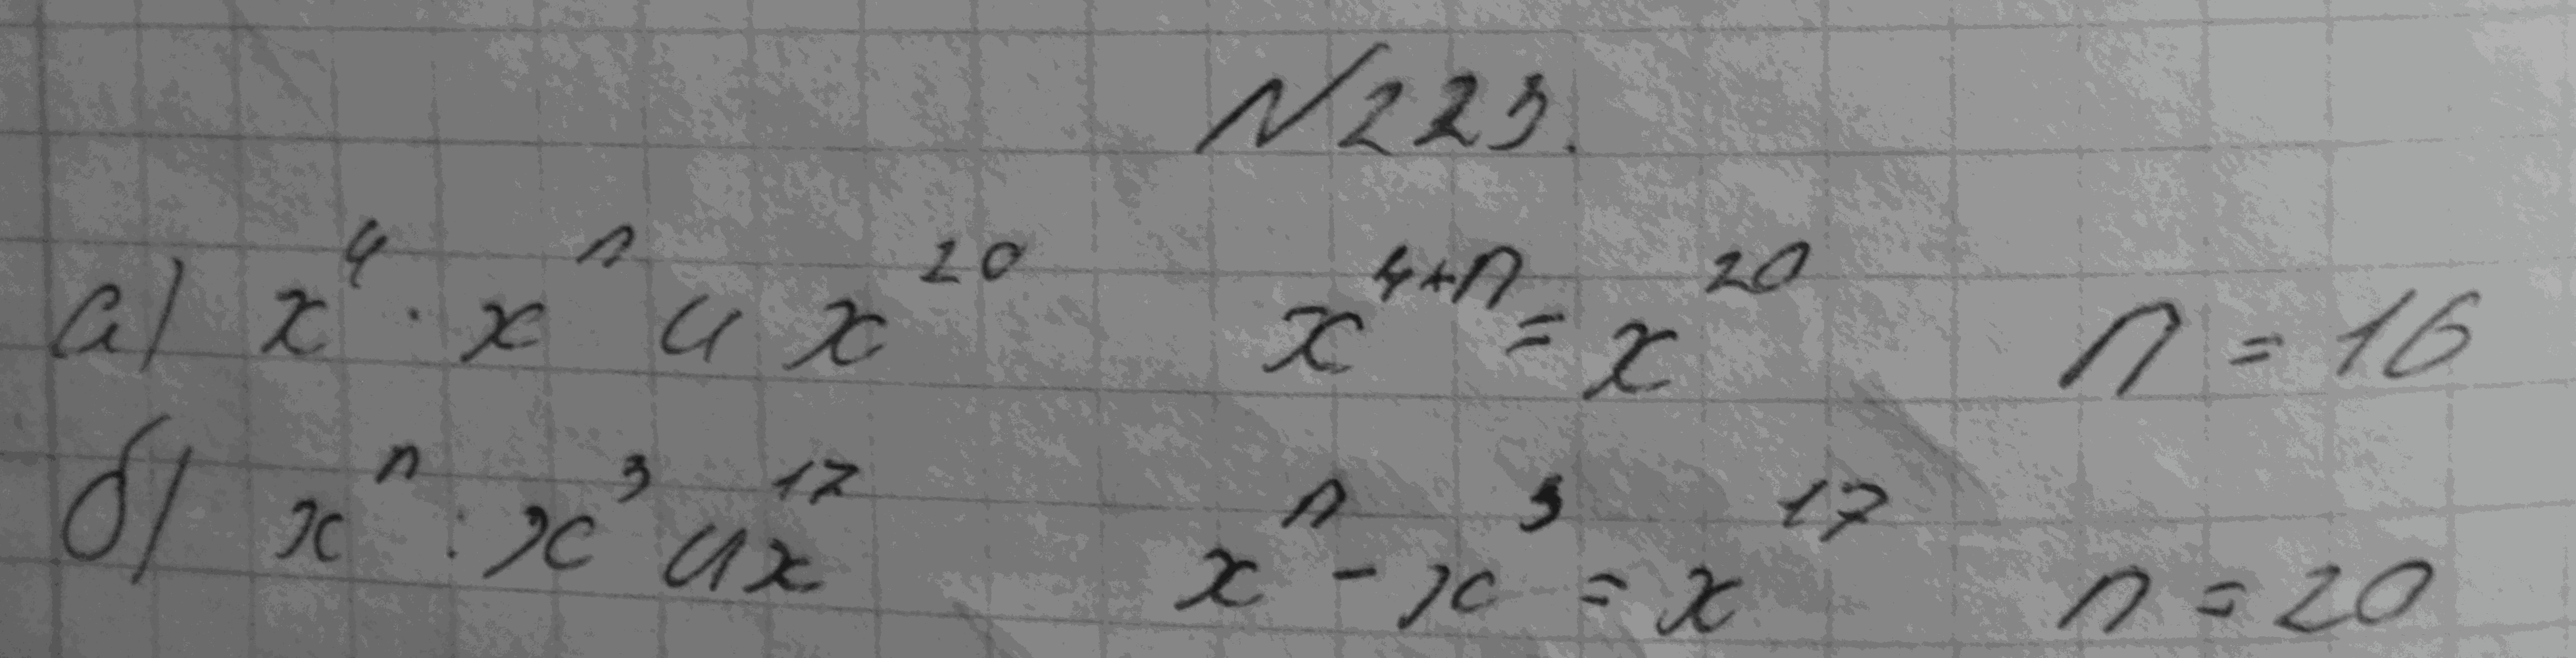 №223.
а) x⁴ · xⁿ и x²⁰ x⁴⁺ⁿ = x²⁰ n = 16
б) xⁿ : x³ и x¹⁷ xⁿ - x³ = x¹⁷ n = 20